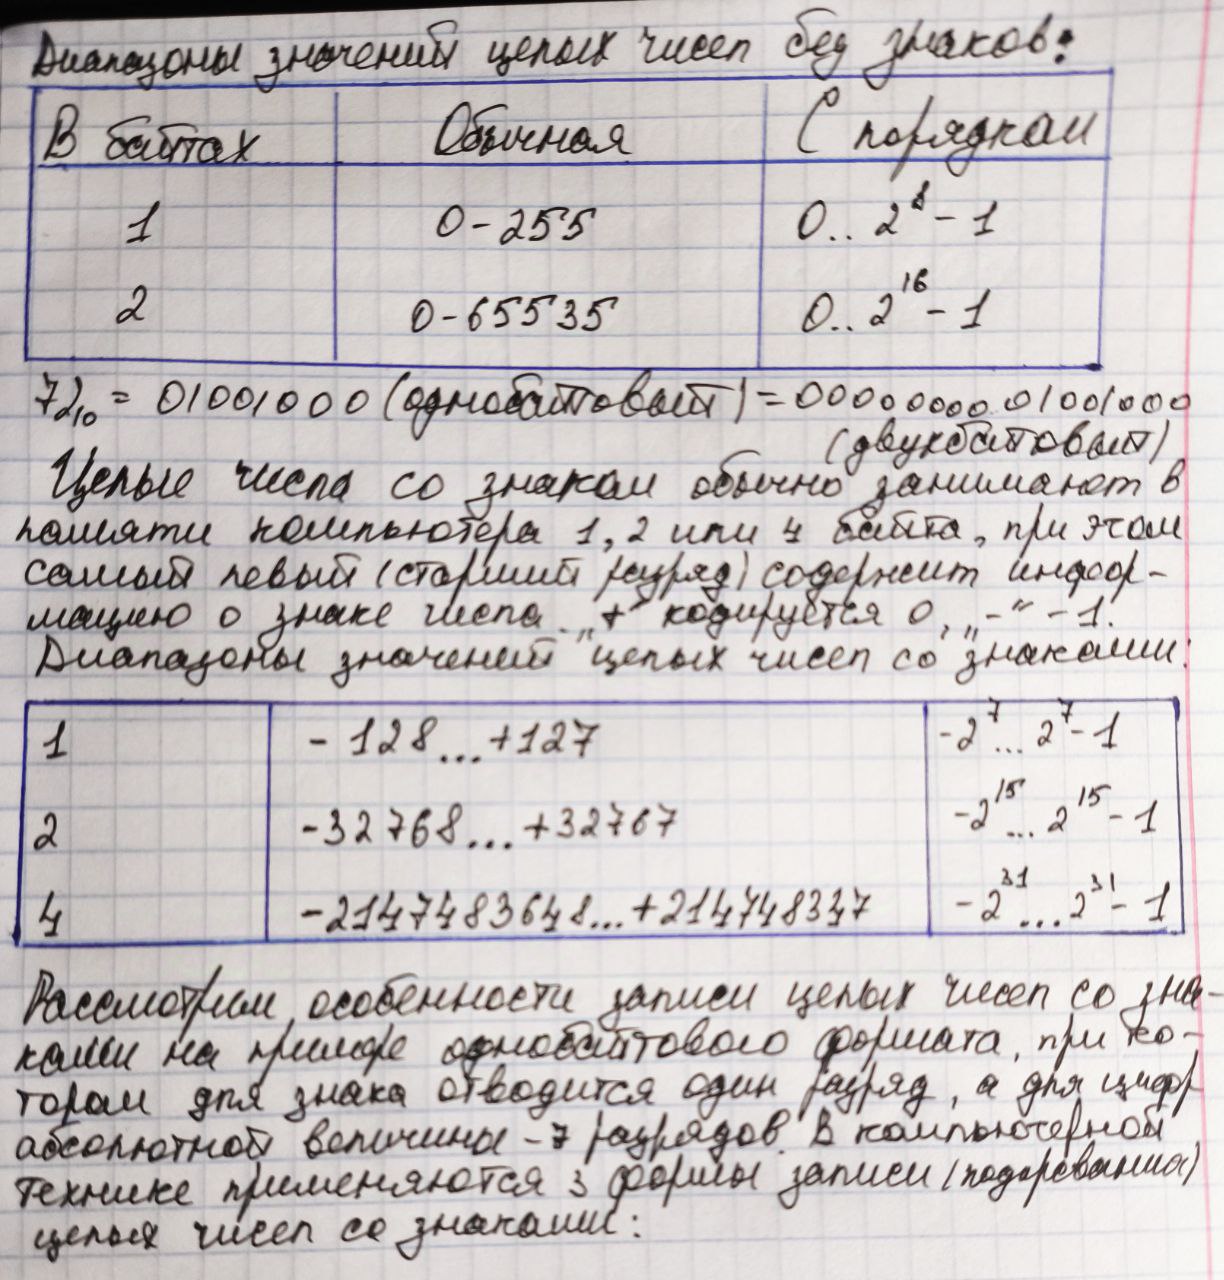 Диапазоны значений целых чисел без знаков:
В байтах Обычная С порядком
1 0-255 0.. 2⁸-1
2 0-65535 0.. 2¹⁶-1
72₁₀ = 01001000 (однобайтовый) = 00000000 01001000
(двухбайтовый)
Целые числа со знаком обычно занимают в
памяти компьютера 1, 2 или 4 байта, при этом
самый левый (старший разряд) содержит инфор-
мацию о знаке числа. „+“ кодируется 0, „-“ - 1.
Диапазоны значений целых чисел со знаками:
1 - 128...+127 -2⁷... 2⁷-1
2 -32768...+32767 -2¹⁵... 2¹⁵-1
4 -2147483648...+214748347 -2³¹...2³¹-1
Рассмотрим особенности записи целых чисел со зна-
ками на примере однобайтового формата, при ко-
тором для знака отводится один разряд, а для цифр
абсолютной величины -7 разрядов. В компьютерной
технике применяются 3 формы записи (кодирования)
целых чисел со знаками: